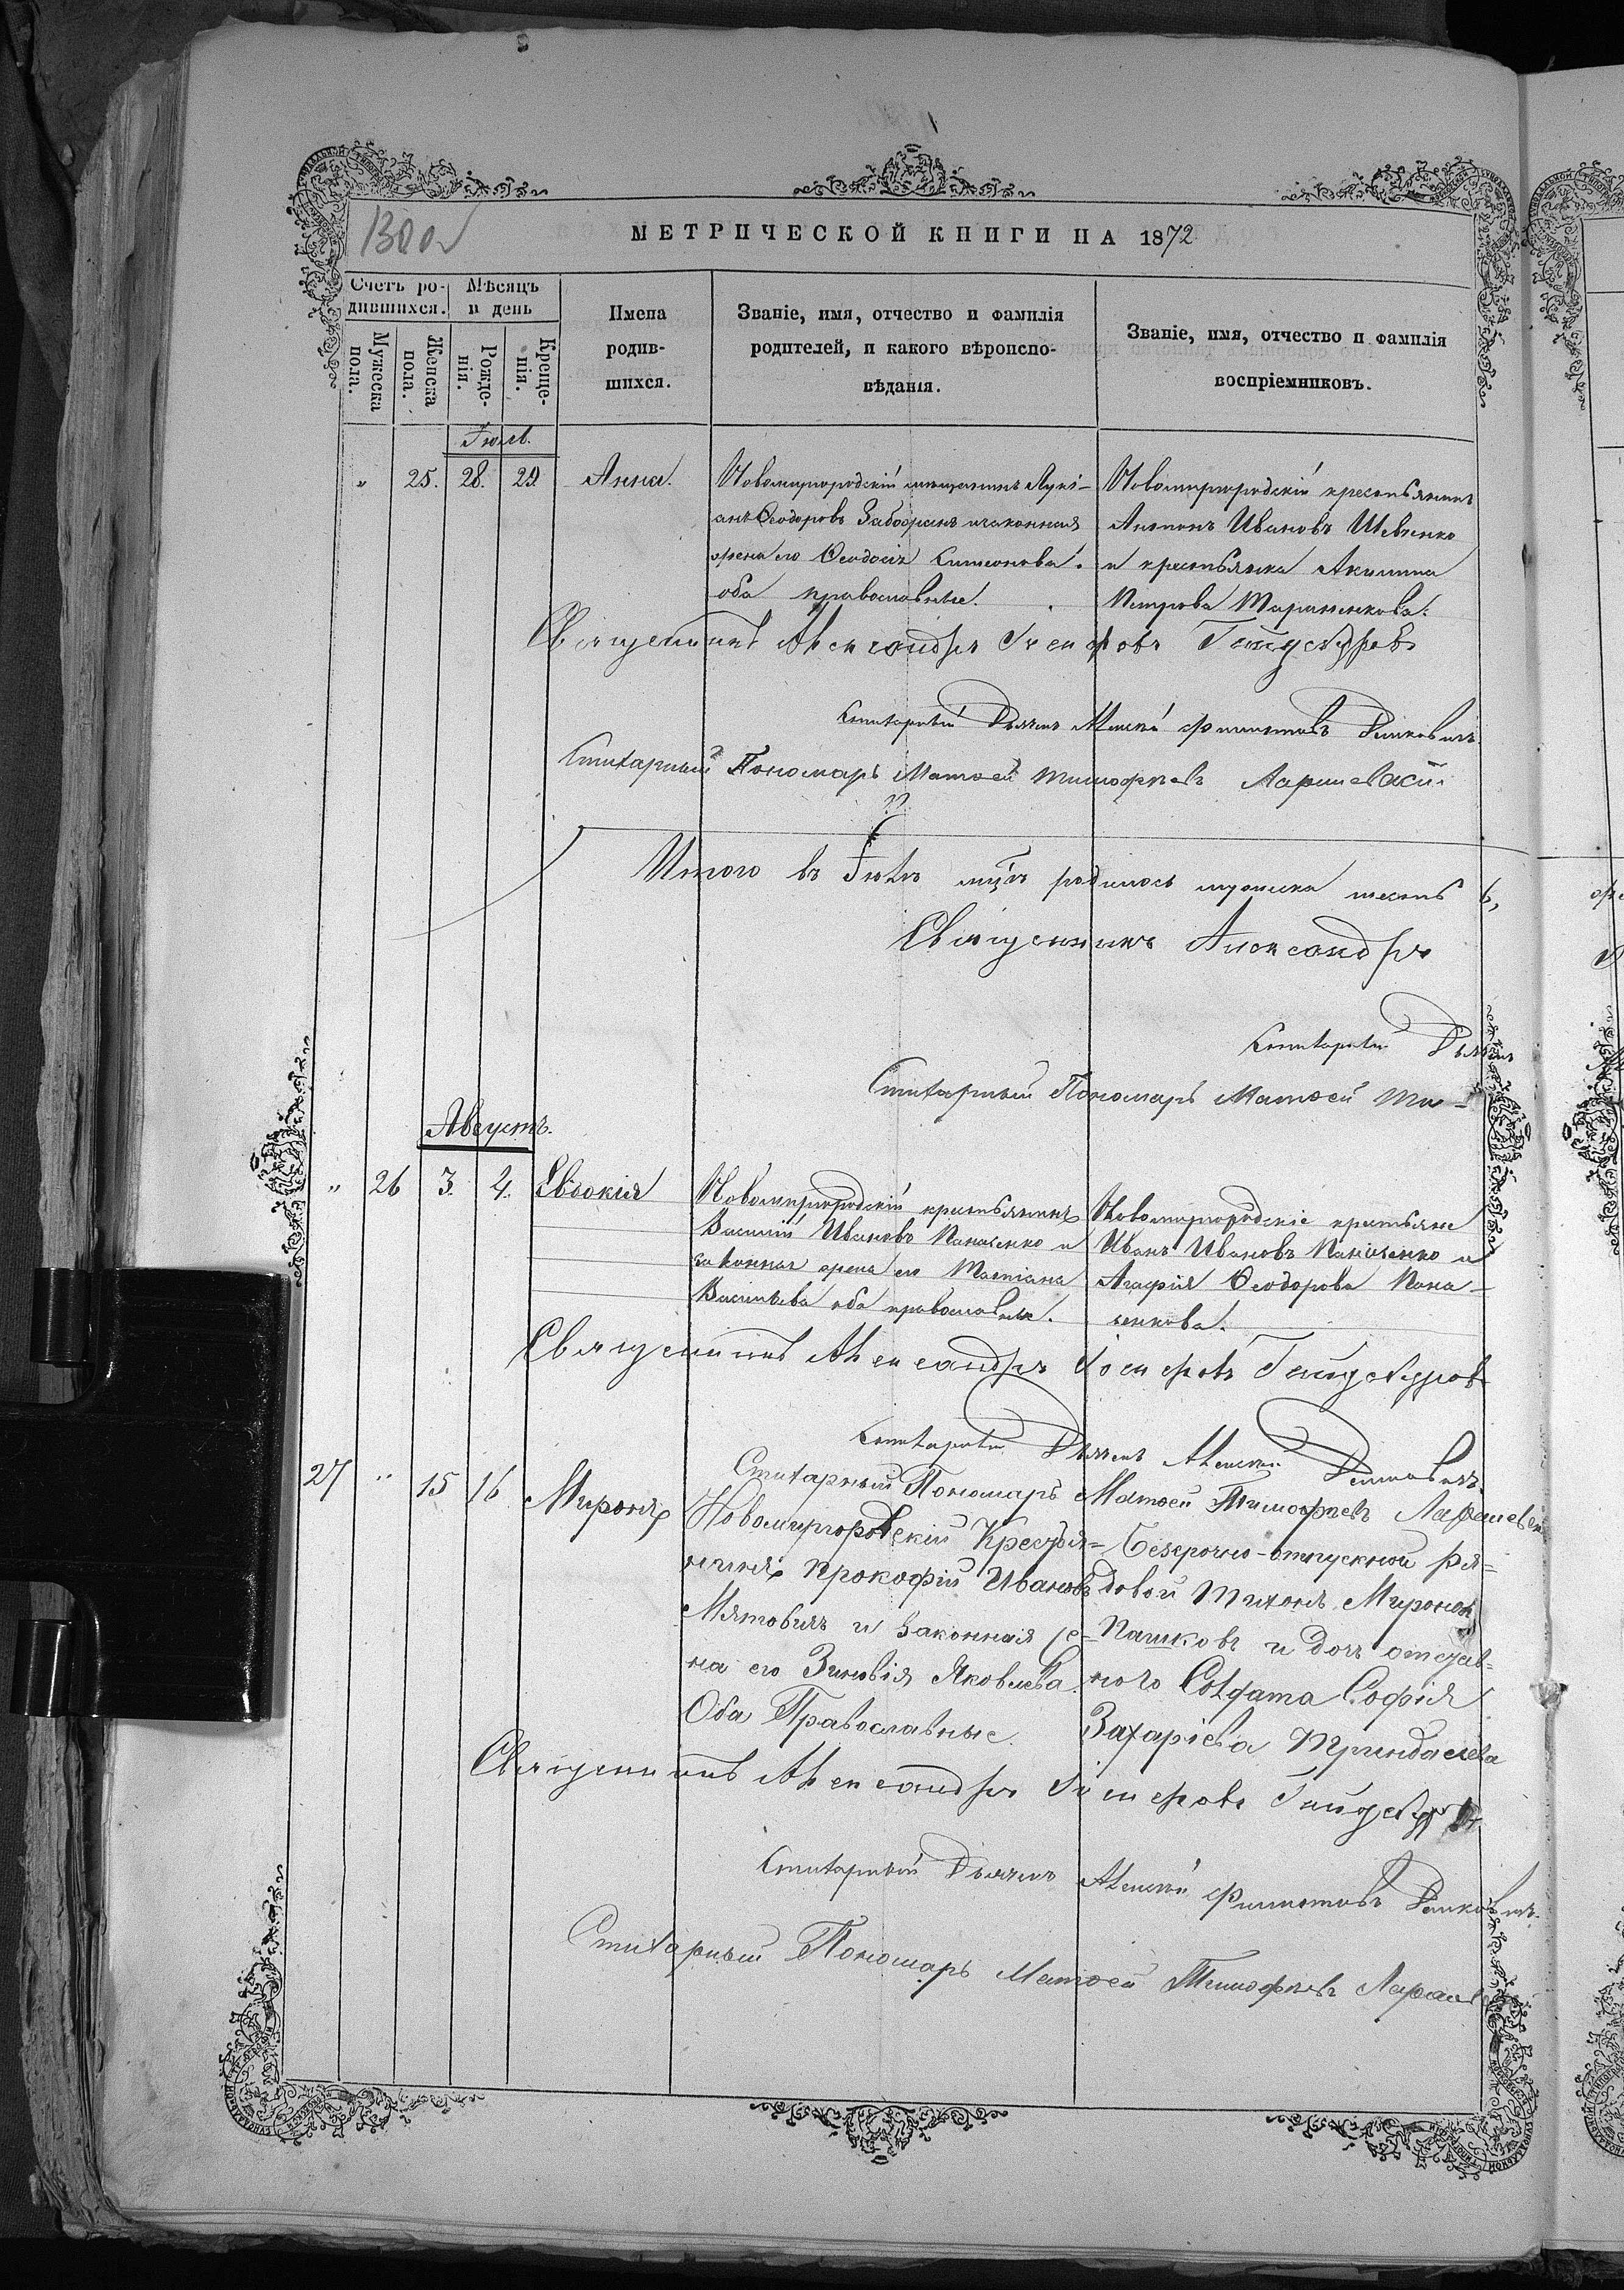 130 об
МЕТРИЧЕСКОЙ КНИГИ НА 1872
Счетъ ро-
дившихся.
Мѣсяцъ
и день
Имена
родив-
шихся.
Званіе, имя, отчество и фамилія
родителей, и какого вѣроиспо-
вѣданія.
Званіе, имя, отчество и фамилія
воспріемниковъ.
Мужеска
пола.
Женска
пола.
Рожде-
нія.
Креще-
нія.
Іюль.
" 25. 28. 29. Анна.
Новомиргородскій мещанинъ Лукі-
анъ Ѳеодоровъ и законная
жена его Ѳеодосія Симеонова.
оба православные.
Новомиргородскій крестьянинъ
Антонъ Ивановъ Шевченко
и крестьянка Акилина
Петрова
Священникъ Александръ Іосифовъ
Стихарный Дьячекъ Алексій Филиповъ
Стихарный Пономарь Матѳей Тимофѣевъ
Итого въ Іюлѣ мцѣ родилось мужеска шесть 6,
Священникъ Александръ
Стихарный Дьячекъ
Стихарный Пономарь Матѳей Ти-
Августъ.
" 26 3. 4. Евдокія
Новомиргородскій крестьянинъ
Василій Ивановъ Панченко и
законная жена его Татіана
Васильева оба православные.
Новомиргородскіе крестьяне
Иванъ Ивановъ Панченко и
Агафія Ѳеодорова Пана-
ченкова.
Священникъ Александръ Іосифовъ
Стихарный Дьячекъ Алексій
Стихарный Пономарь Матѳей Тимофѣевъ
27 " 15 16 Миронъ
Новомиргородскій Крестья-
нинъ Прокофій Ивановъ
Мятовичъ и законная же-
на его Зиновія Яковлева
Оба Православные.
Безсрочно-отпускной ря-
довой Тихонъ Мироновъ
Пашковъ и дочь отстав-
ного Солдата Софія
Захаріева
Священникъ Александръ Іосифовъ
Стихарный Дьячекъ Алексій Филиповъ
Стихарный Пономарь Матѳей Тимофѣевъ